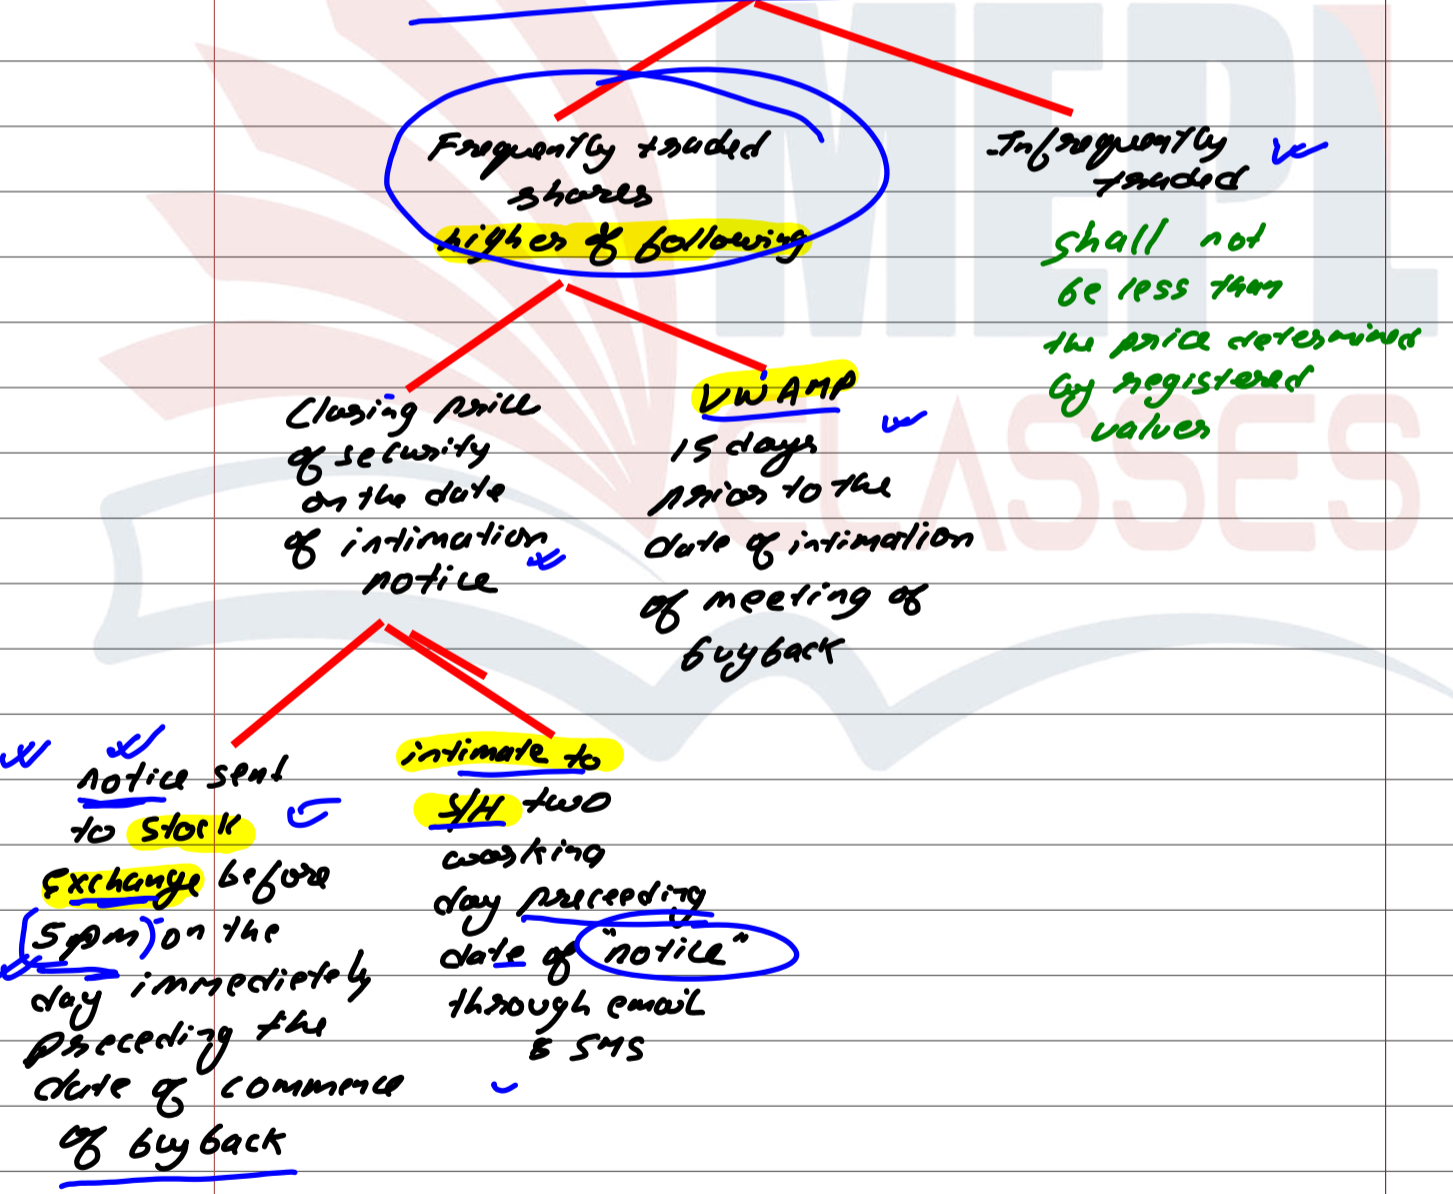 MEPL
CLASSES
Frequently traded
shares
higher of following
Infrequently
traded
shall not
be less than
the price determined
by registered
values
Closing price
of security
on the date
of intimation
notice
VWAMP
15 days
prior to the
date of intimation
of meeting of
buyback
notice sent
to stock
Exchange before
(5pm) on the
day immedietely
preceding the
date of commence
of buyback
intimate to
S/H two
working
day preceeding
date of "notice"
through email
& SMS